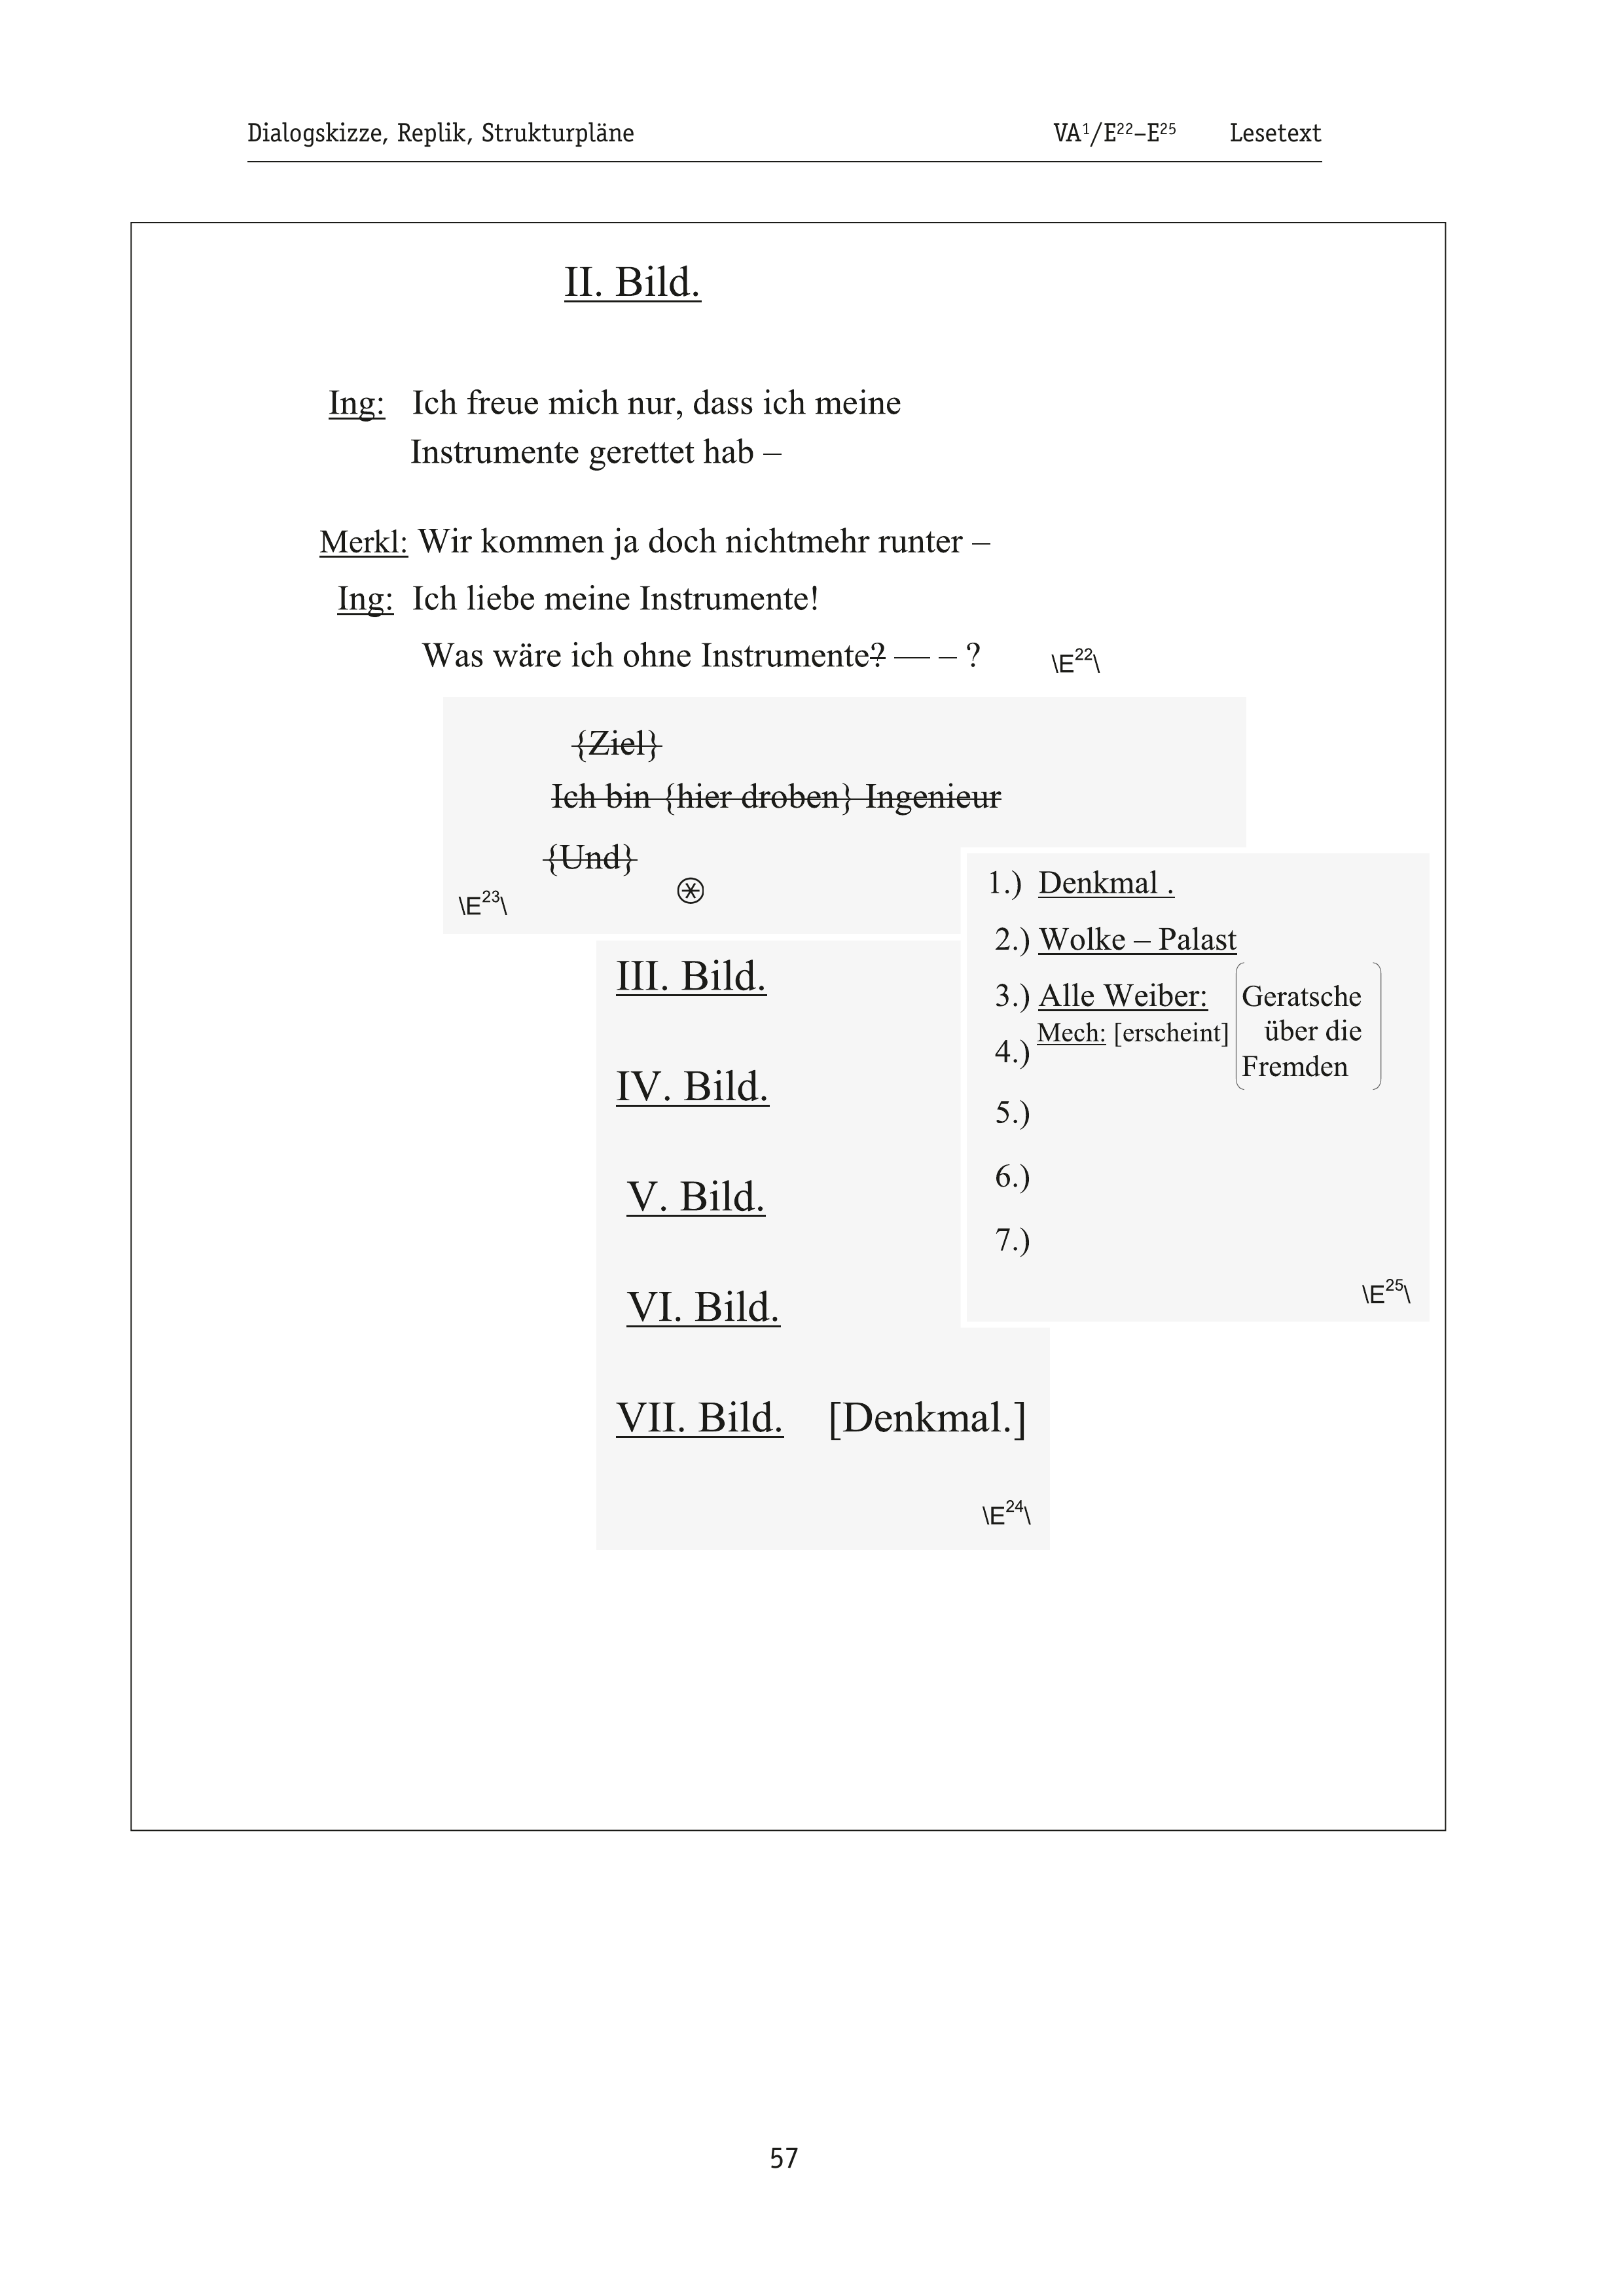 Dialogskizze, Replik, Strukturpläne VA¹/E²²–E²⁵ Lesetext
II. Bild.
Ing: Ich freue mich nur, dass ich meine
Instrumente gerettet hab –
Merkl: Wir kommen ja doch nichtmehr runter –
Ing: Ich liebe meine Instrumente!
Was wäre ich ohne Instrumente? — – ? \E²²\
{Ziel}
Ich bin {hier droben} Ingenieur
{Und}
\E²³\
III. Bild.
IV. Bild.
V. Bild.
VI. Bild.
VII. Bild. [Denkmal.]
\E²⁴\
1.) Denkmal .
2.) Wolke – Palast
3.) Alle Weiber: Geratsche
Mech: [erscheint] über die
4.) Fremden
5.)
6.)
7.)
\E²⁵\
57